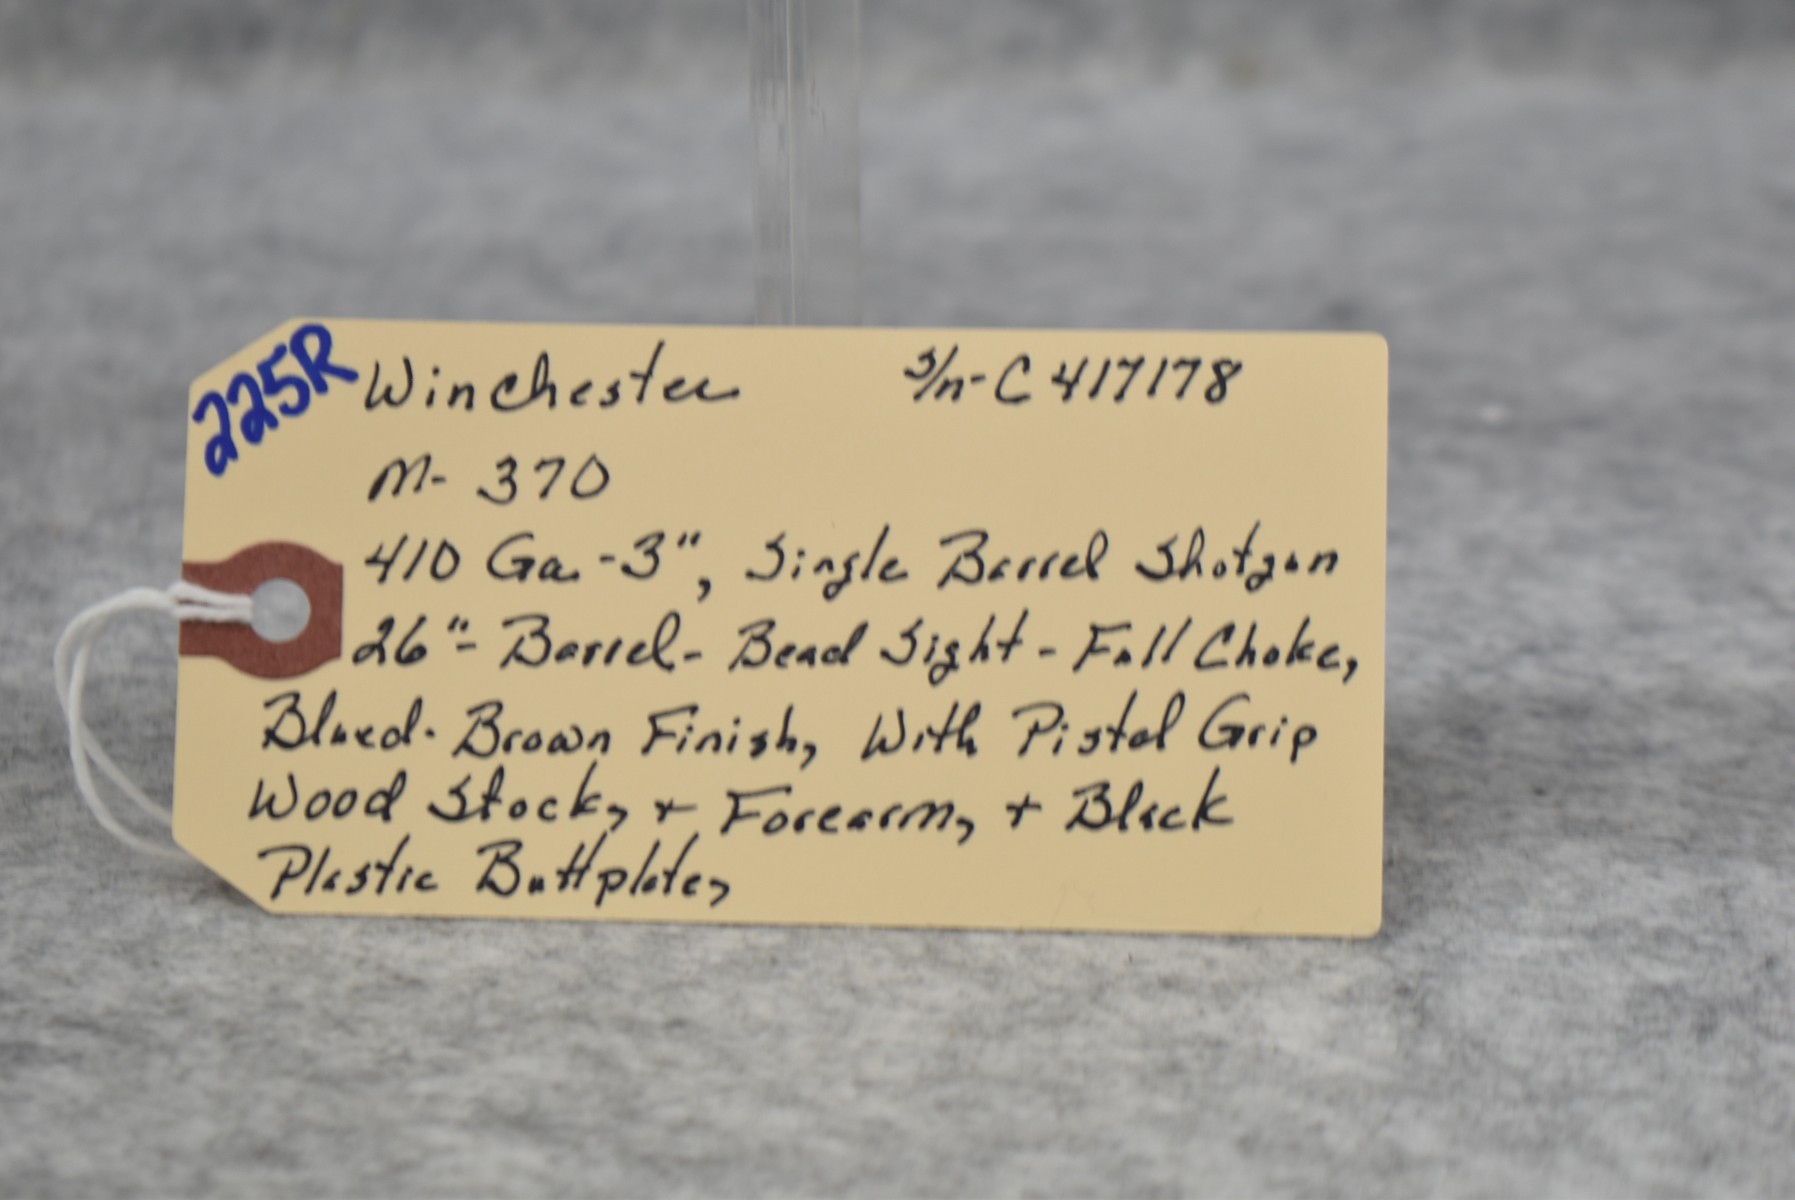 225R
Winchester S/n-C417178
M-370
410 Ga.-3", Single Barrel Shotgun
26"- Barrel- Bead Sight - Full Choke,
Blued-Brown Finish, With Pistol Grip
Wood Stock, + Forearm, + Black
Plastic Buttplate,